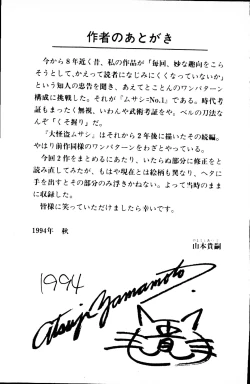 作者のあとがき
今から８年近く昔、私の作品が「毎回、妙な趣向をこら
そうとして、かえって読者になじみにくくなっていないか」
という知人の忠告を聞き、あえてとことんのワンパターン
構成に挑戦した。それが『ムサシ＝No.1』である。時代考
証もまったく無視、いわんや武術考証をや。ベルの刀法な
んぞ「くそ握り」だ。
『大怪盗ムサシ』はそれから２年後に描いたその続編。
やはり前作同様のワンパターンをわざとやっている。
今回２作をまとめるにあたり、いたらぬ部分に修正をと
読み直してみたが、もはや現在とは絵柄も異なり、ヘタに
手を出すとその部分のみ浮きかねない。よって当時のまま
に収録した。
皆様に笑っていただけましたら幸いです。
1994年　秋
山本貴嗣
1994
Atsuji Yamamoto